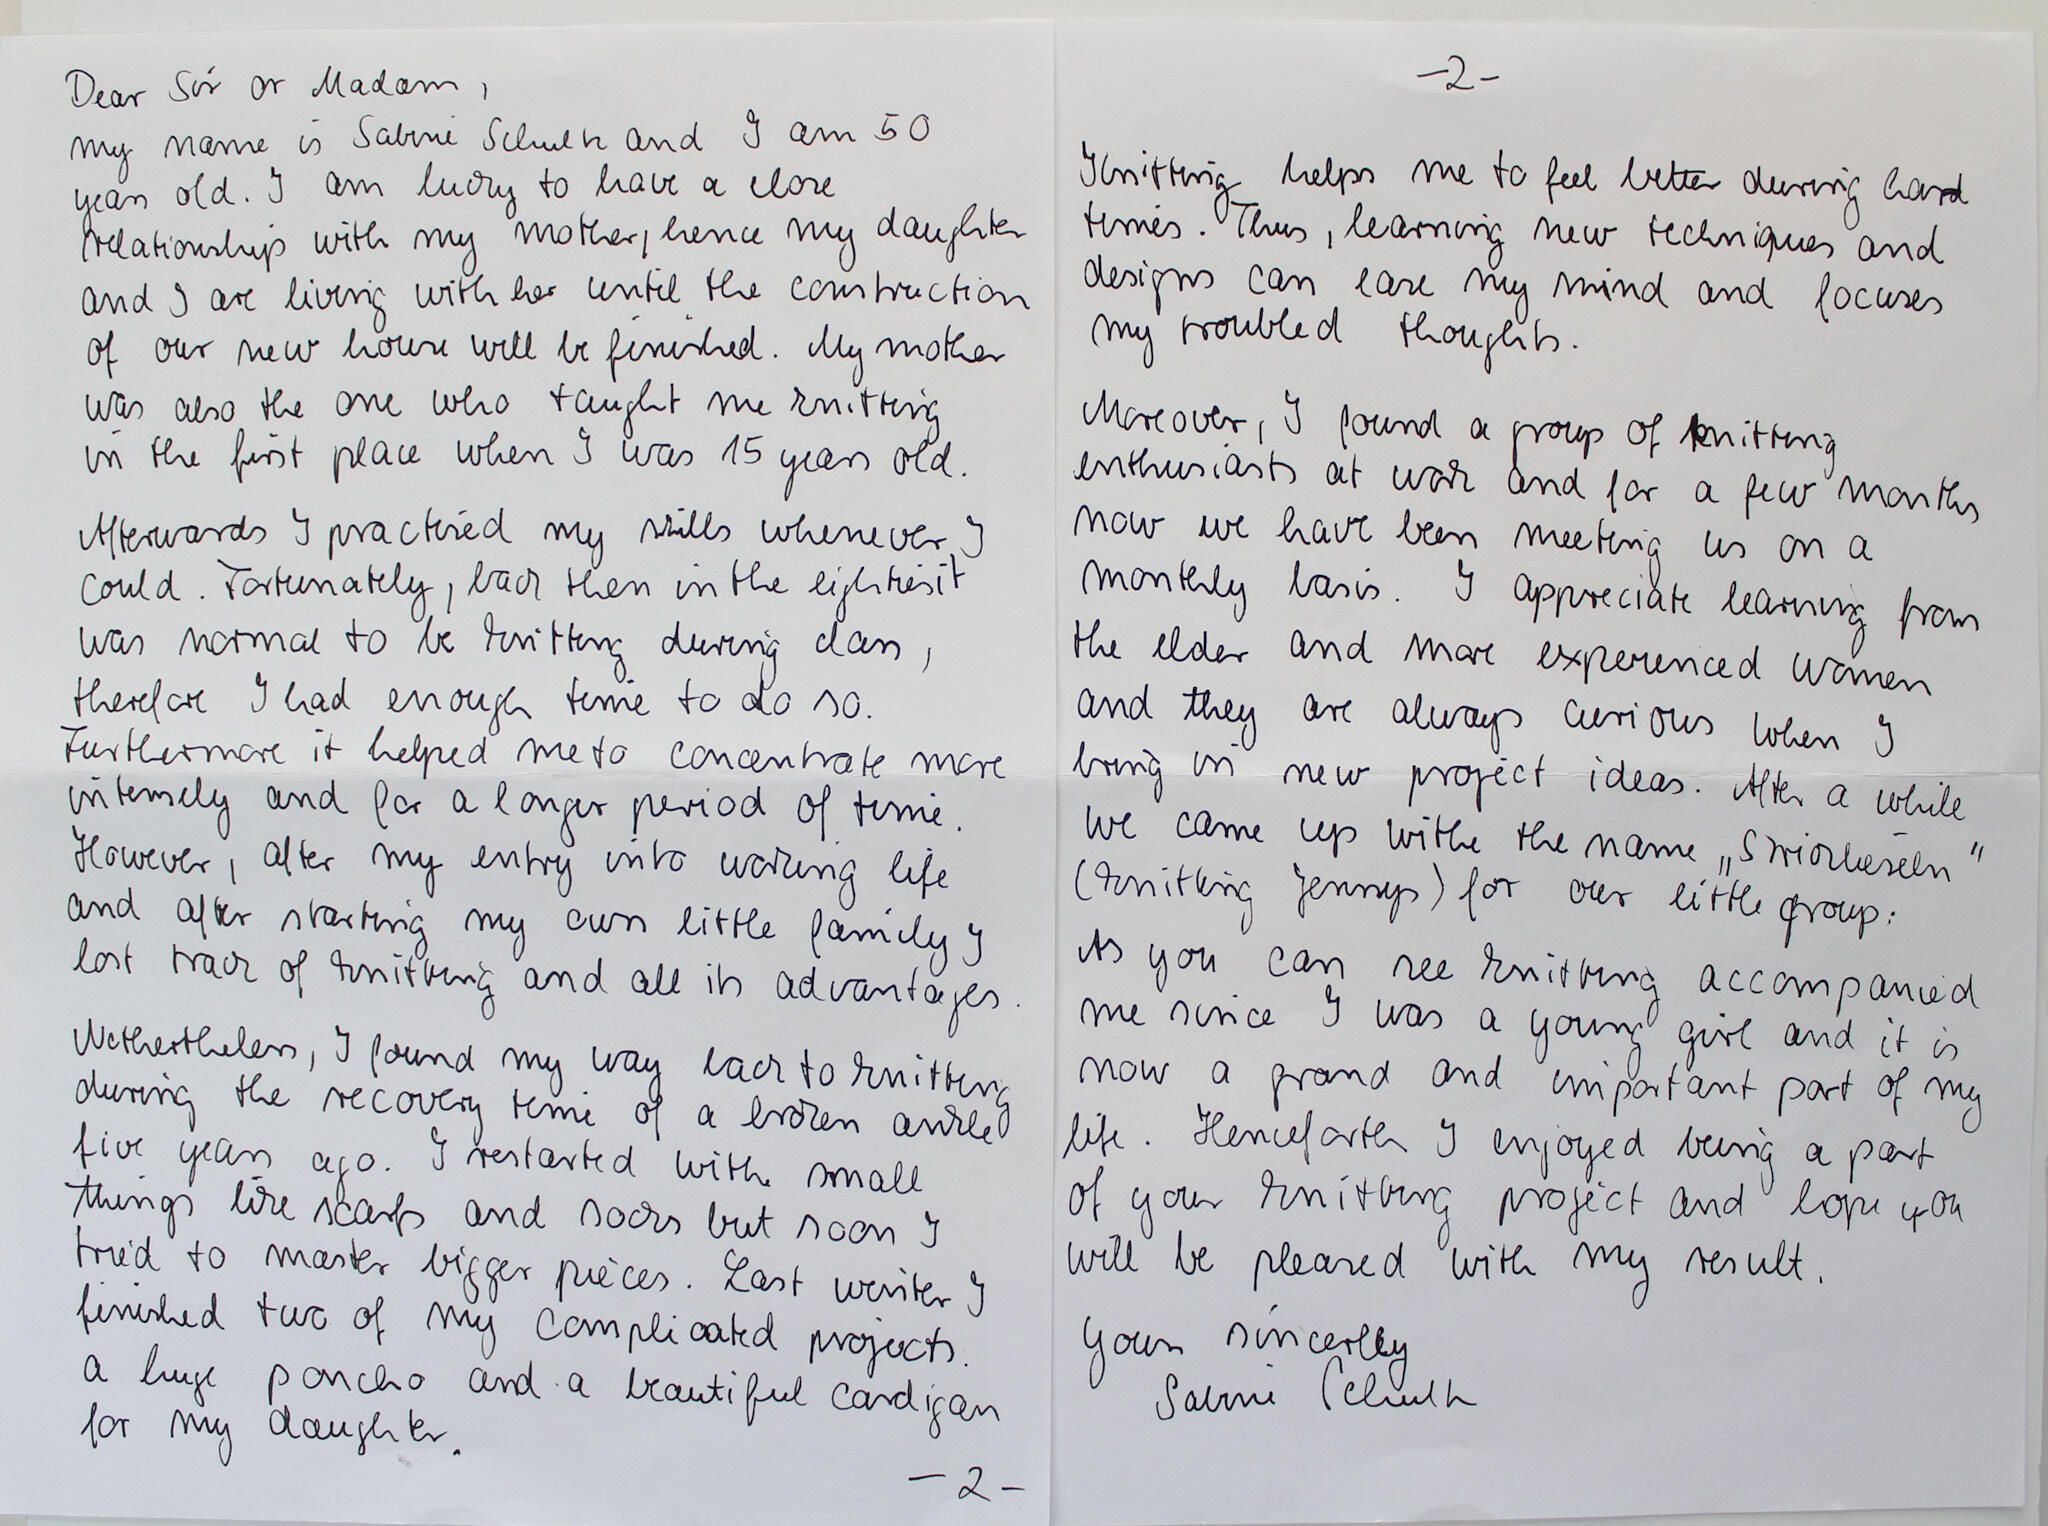 Dear Sir or Madam,
my name is Sabine Schultz and I am 50
years old. I am lucky to have a close
relationship with my mother, hence my daughter
and I are living with her until the construction
of our new house will be finished. My mother
was also the one who taught me knitting
in the first place when I was 15 years old.
Afterwards I practised my skills whenever I
could. Fortunately, back then in the eighties it
was normal to be knitting during class,
therefore I had enough time to do so.
Furthermore it helped me to concentrate more
intensely and for a longer period of time.
However, after my entry into working life
and after starting my own little family I
lost track of knitting and all its advantages.
Nethertheless, I found my way back to knitting
during the recovery time of a broken ankle
five years ago. I restarted with small
things like scarfs and socks but soon I
tried to master bigger pieces. Last winter I
finished two of my complicated projects.
a huge poncho and a beautiful cardigan
for my daughter.
-2-
-2-
Knitting helps me to feel better during hard
times. Thus, learning new techniques and
designs can ease my mind and focuses
my troubled thoughts.
Moreover, I found a group of knitting
enthusiasts at work and for a few months
now we have been meeting us on a
monthly basis. I appreciate learning from
the elder and more experienced women
and they are always curious when I
bring in new project ideas. After a while
we came up withe the name „Stricklieseln“
(Knitting Jennys) for our little group.
As you can see knitting accompanied
me since I was a young girl and it is
now a grand and important part of my
life. Henceforth I enjoyed being a part
of your knitting project and hope you
will be pleased with my result.
Yours sincerlly
Sabine Schultz